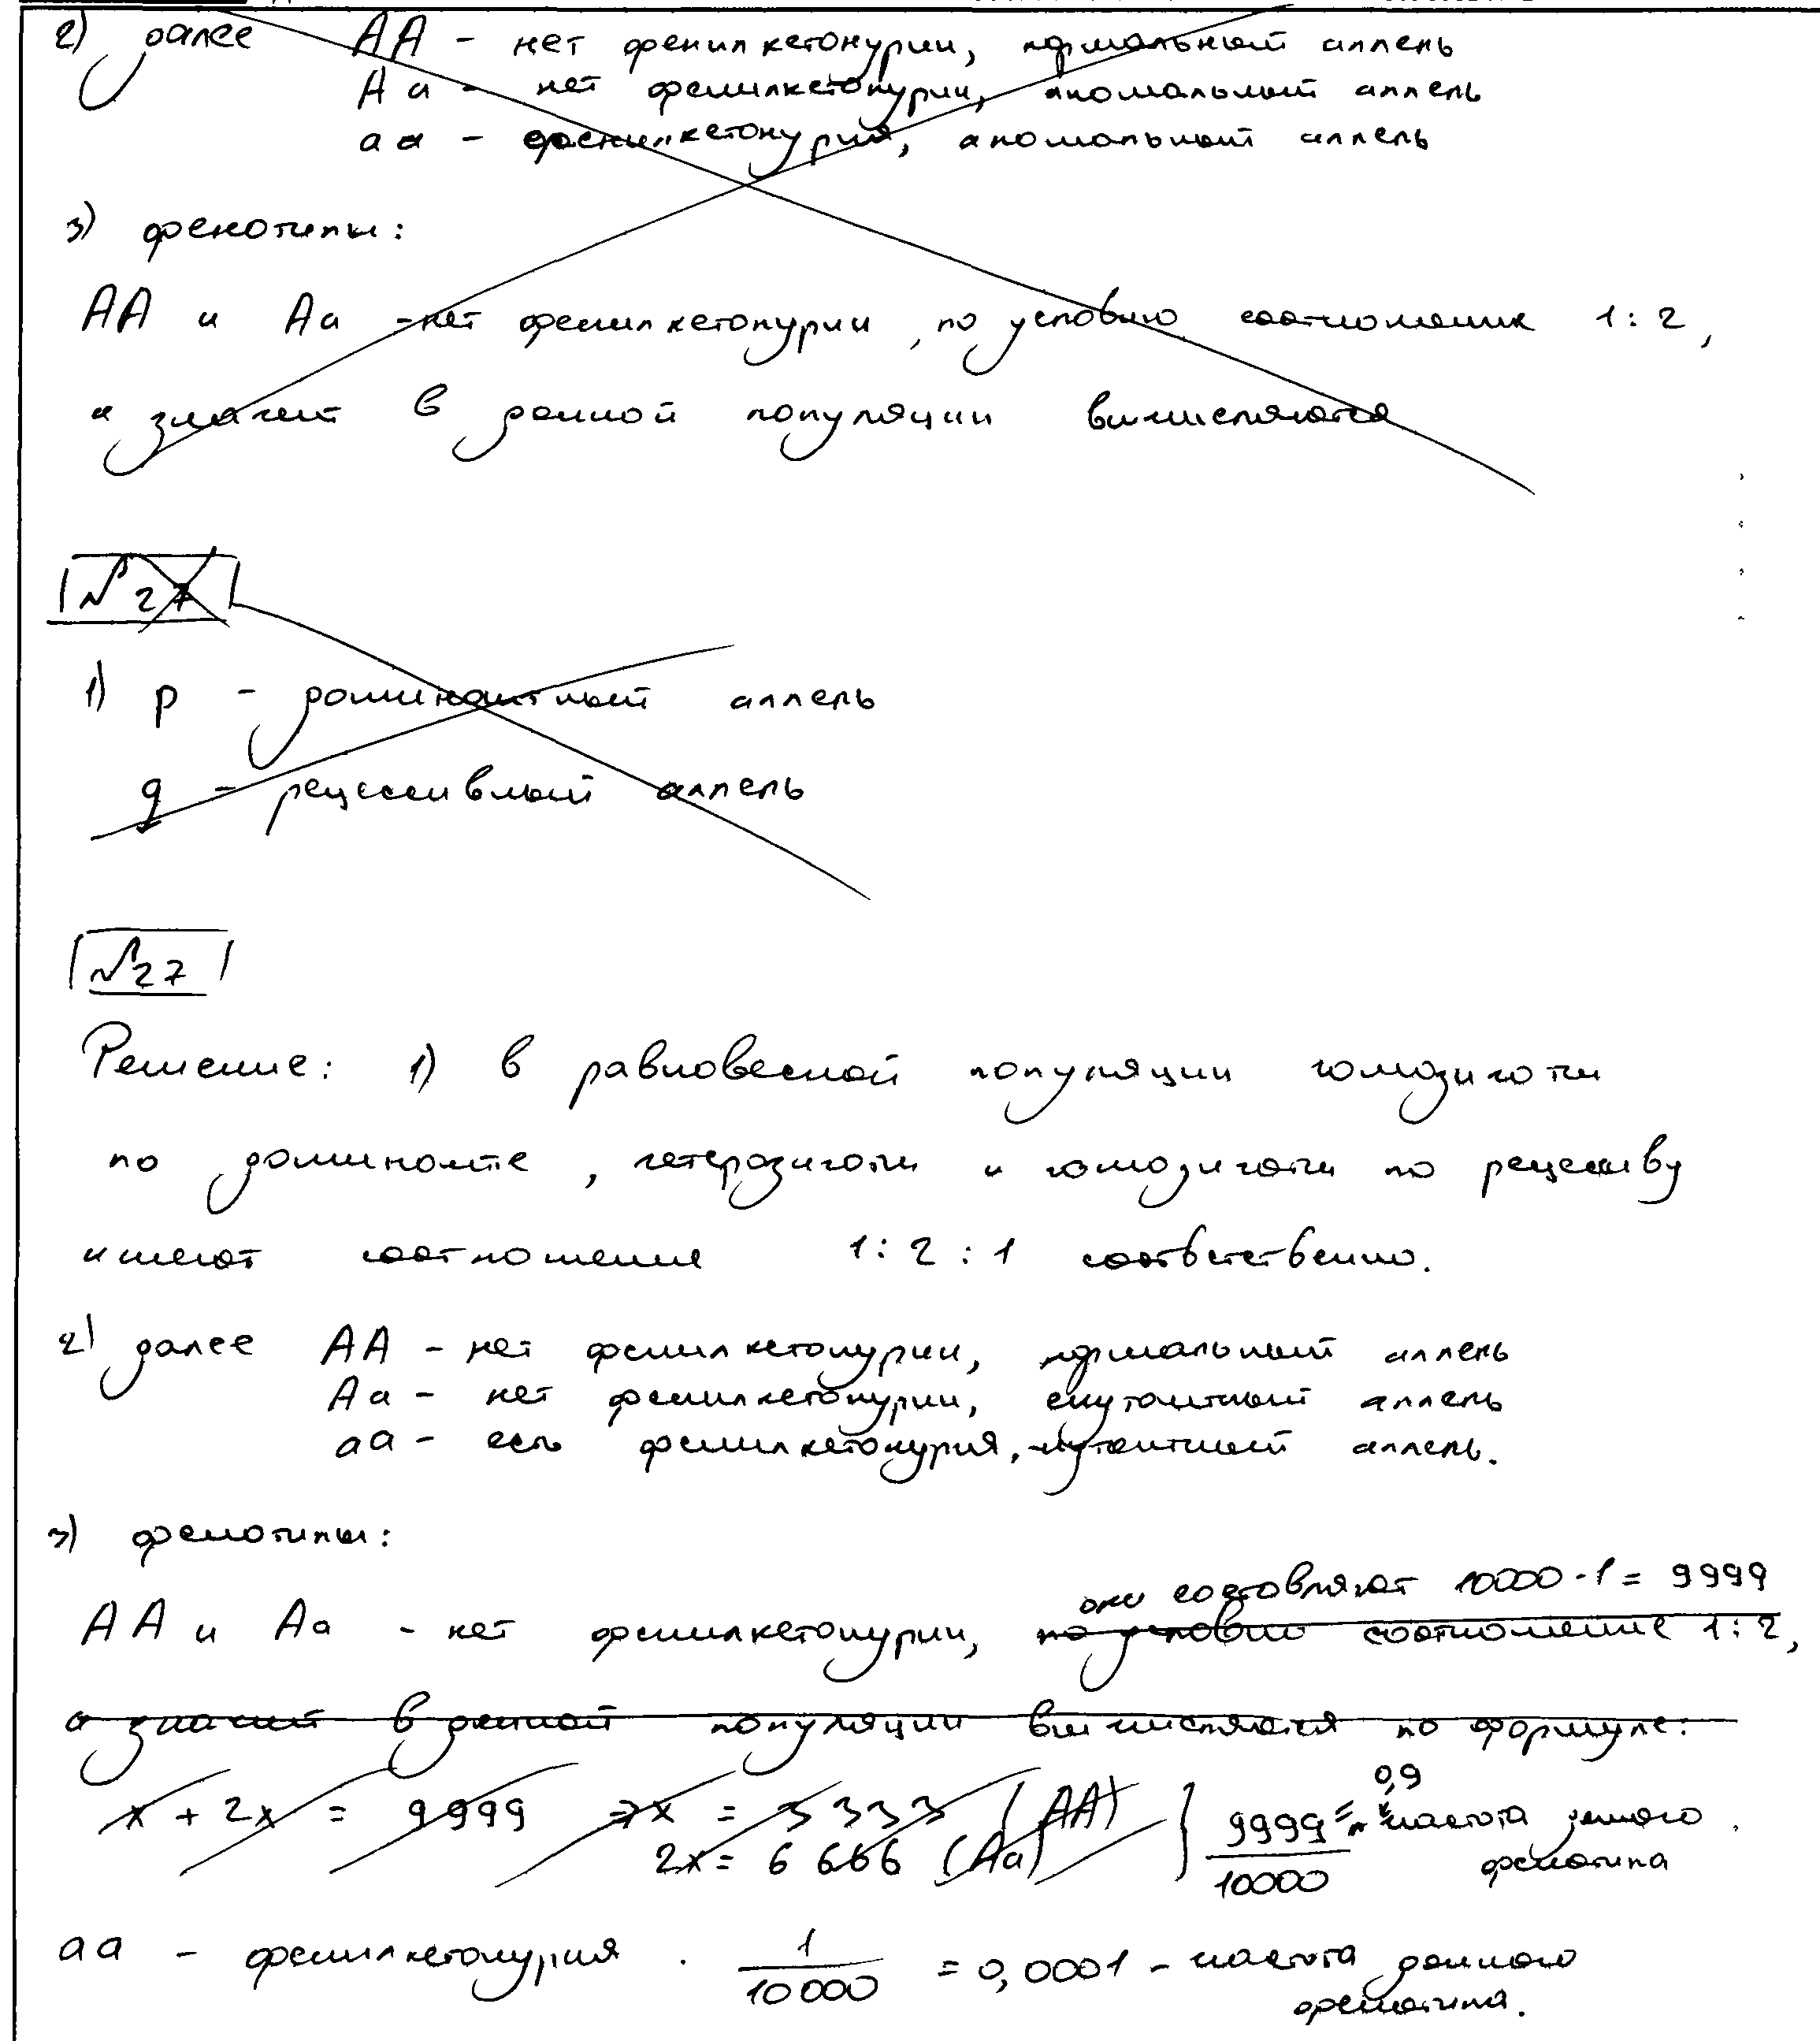 2) далее АА - нет фенилкетонурии, нормальный аллель
Аа - нет фенилкетонурии, аномальный аллель
аа - фенилкетонурия, аномальный аллель
3) фенотипы:
АА и Аа - нет фенилкетонурии, по условию соотношение 1:2,
а значит в данной популяции вычисляются
№27
1) p - доминантный аллель
q - рецессивный аллель
№27
Решение: 1) в равновесной популяции гомозиготы
по доминанте, гетерозиготы и гомозиготы по рецессиву
имеют соотношение 1:2:1 соответственно.
2) далее АА - нет фенилкетонурии, нормальный аллель
Аа - нет фенилкетонурии, мутантный аллель
аа - есть фенилкетонурия, мутантный аллель.
3) фенотипы:
они составляют 10000-1=9999
АА и Аа - нет фенилкетонурии, по условию соотношение 1:2,
а значит в данной популяции вычисляются по формуле:
x + 2x = 9999 => x = 3333 (АА) } 9999/10000 ≈ 0,9 частота данного
2x = 6666 (Аа) фенотипа
аа - фенилкетонурия. 1/10000 = 0,0001 - частота данного
фенотипа.